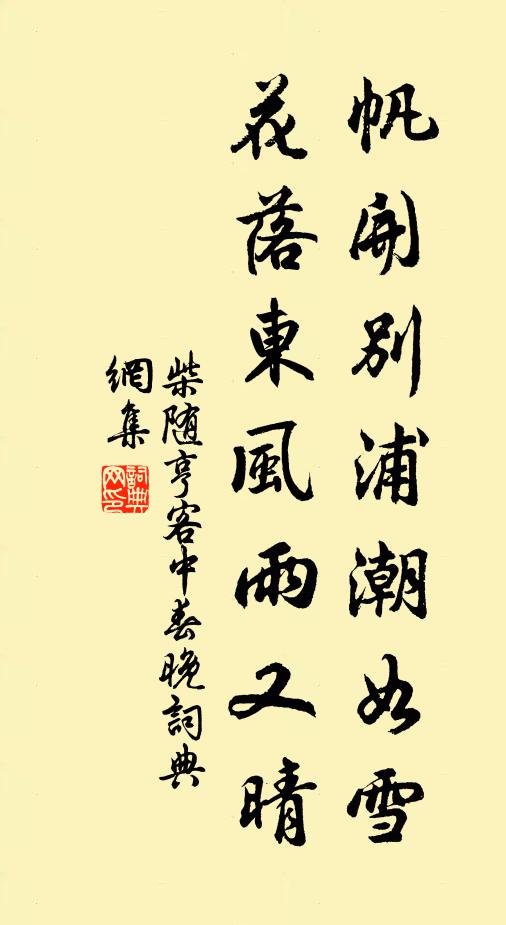 帆開別浦潮如雪
花落東風雨又晴
柴随亨客中春晚詞典
網集
詞典網印